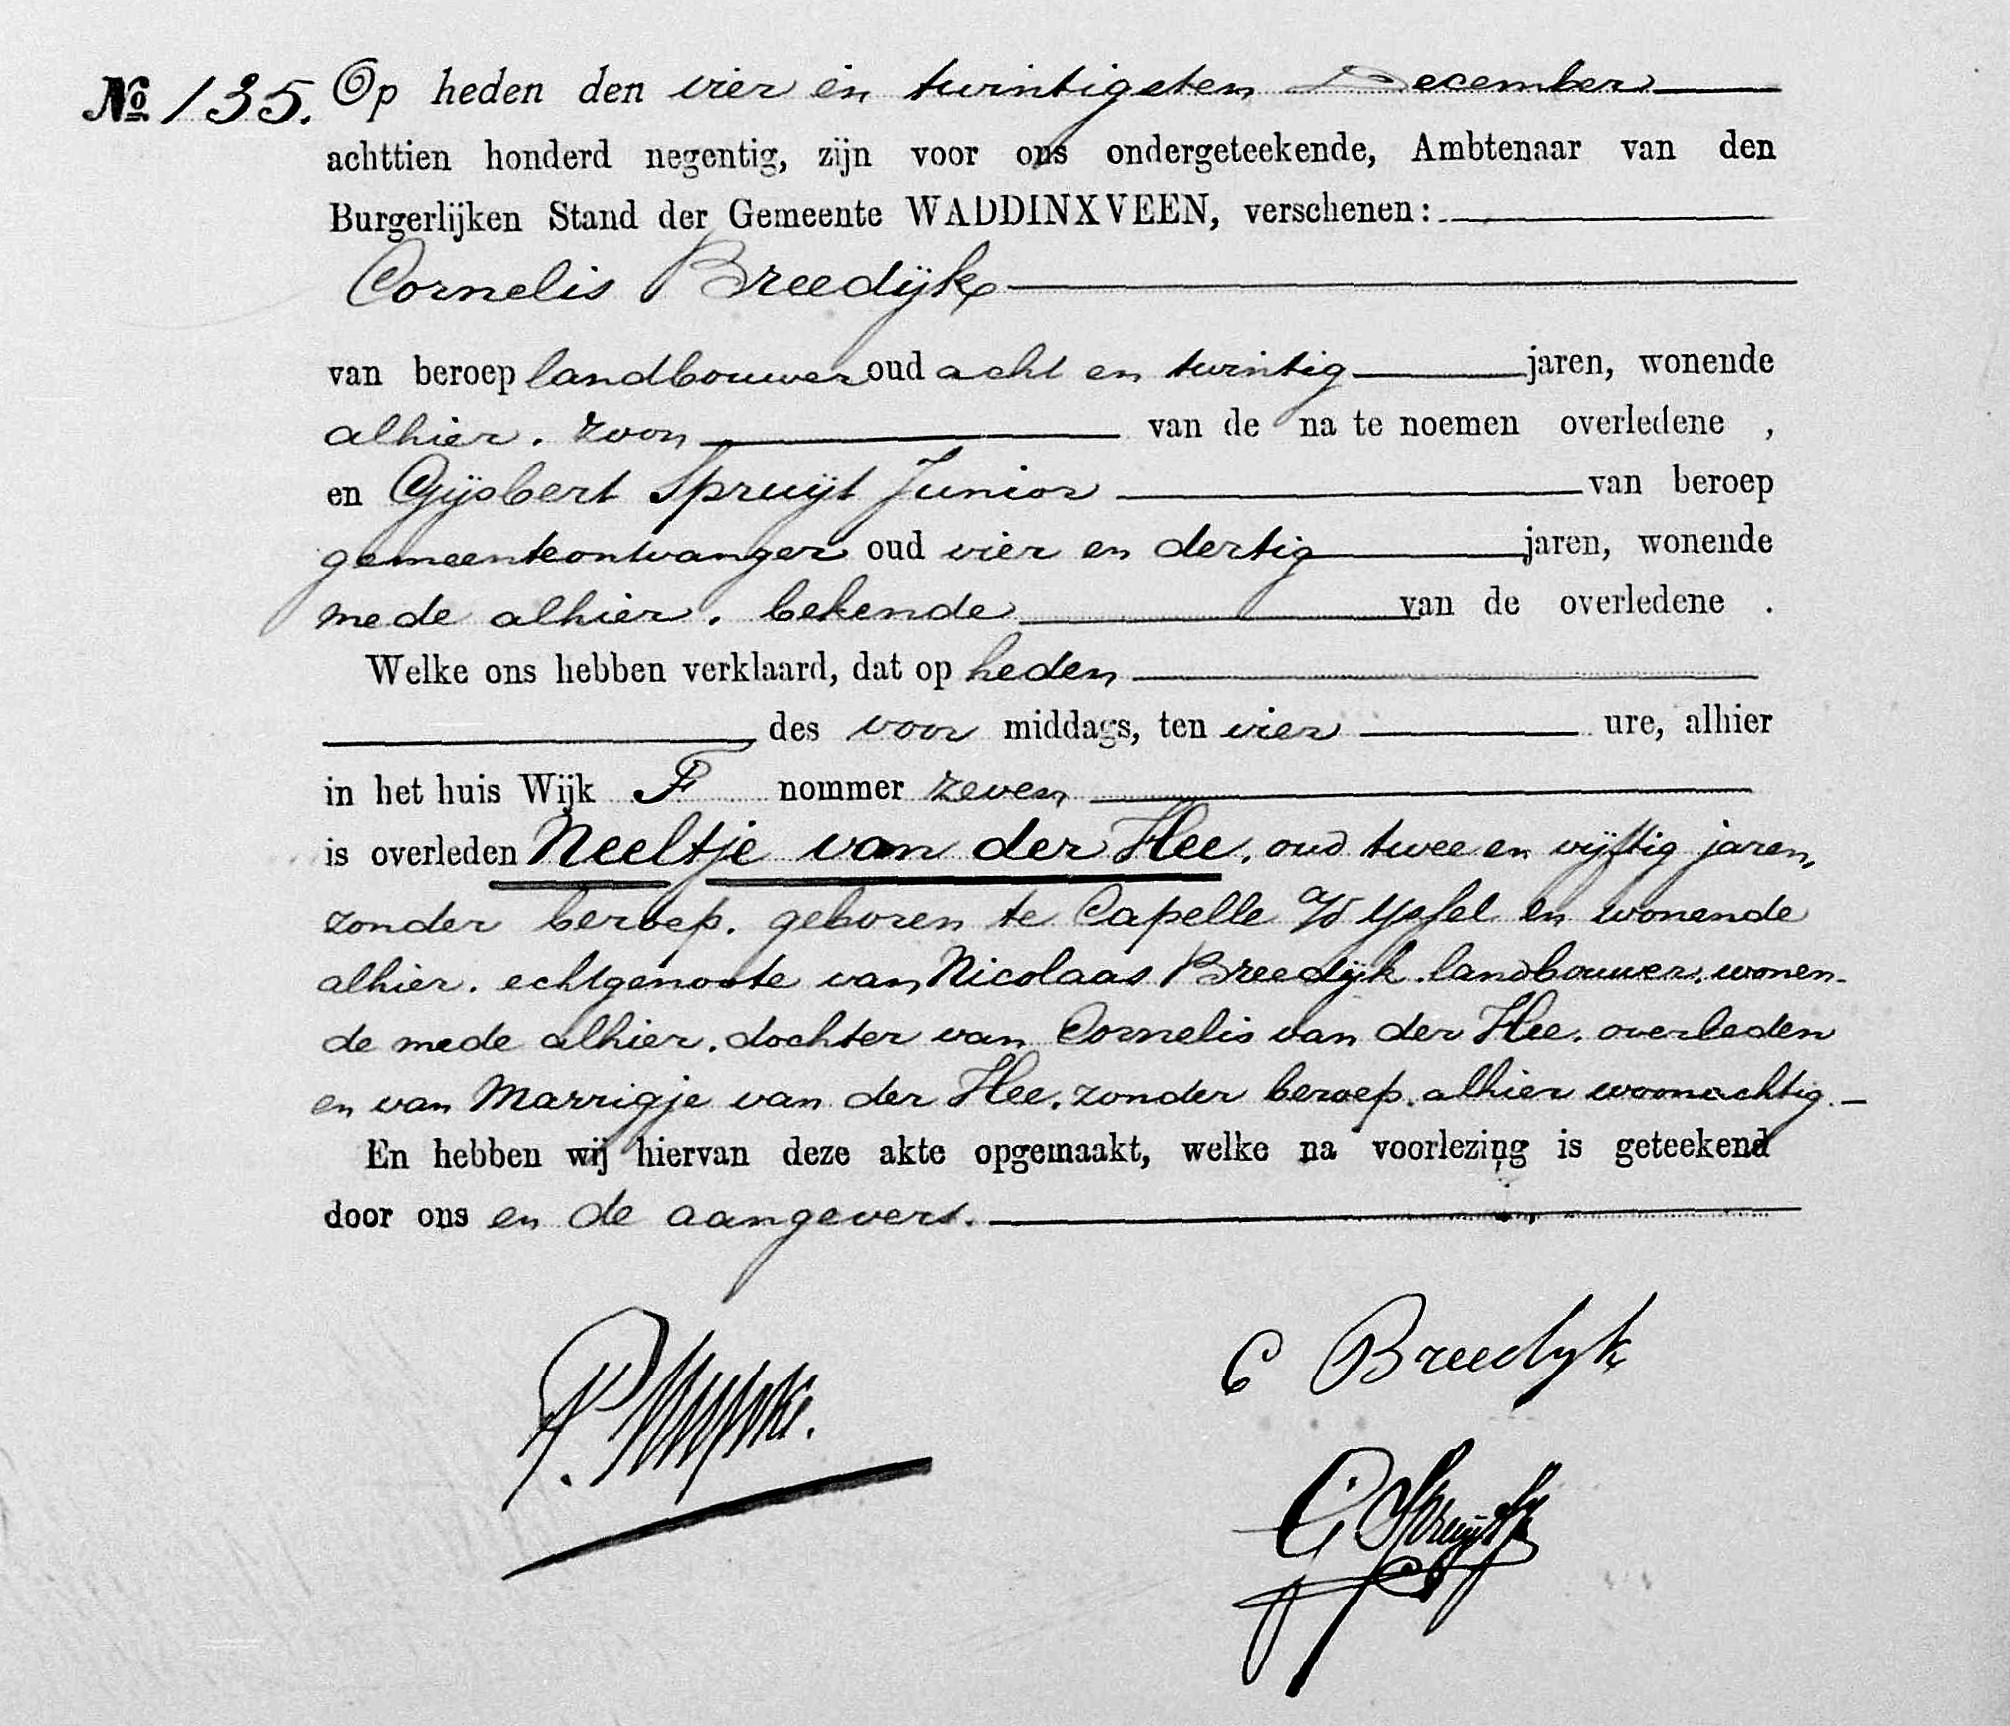 No 135. Op heden den vier en twintigsten December
achttien honderd negentig, zijn voor ons ondergeteekende, Ambtenaar van den
Burgerlijken Stand der Gemeente WADDINXVEEN, verschenen:
Cornelis Breedijk
van beroep landbouwer oud acht en twintig jaren, wonende
alhier. zoon van de na te noemen overledene ,
en Gijsbert Spruijt Junior van beroep
gemeenteontvanger oud vier en dertig jaren, wonende
mede alhier. bekende van de overledene .
Welke ons hebben verklaard, dat op heden
des voor middags, ten vier ure, alhier
in het huis Wijk F nommer zeven
is overleden Neeltje van der Hee. oud twee en vijftig jaren,
zonder beroep. geboren te Capelle a/d IJssel en wonende
alhier. echtgenoote van Nicolaas Breedijk. landbouwer. wonen-
de mede alhier. dochter van Cornelis van der Hee. overleden
en van Marrigje van der Hee. zonder beroep. alhier woonachtig.
En hebben wij hiervan deze akte opgemaakt, welke na voorlezing is geteekend
door ons en de aangevers.
C Breedyk
G Spruijt